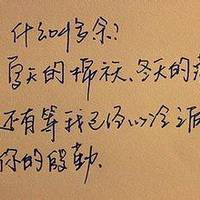 什么叫多余?
夏天的棉袄、冬天的
还有等我已经心冷之后
你的殷勤、